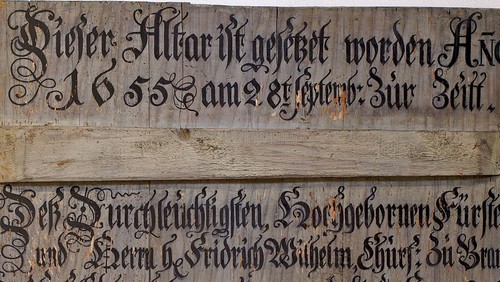 Dieser Altar ist gesetzet worden Año
1655 am 28t. septemb: Zur Zeitt,
Deß Durchleuchtigsten, Hochgebornen Fürste
und Herrn h. Fridrich Wilhelm, Churf: Zu Bran